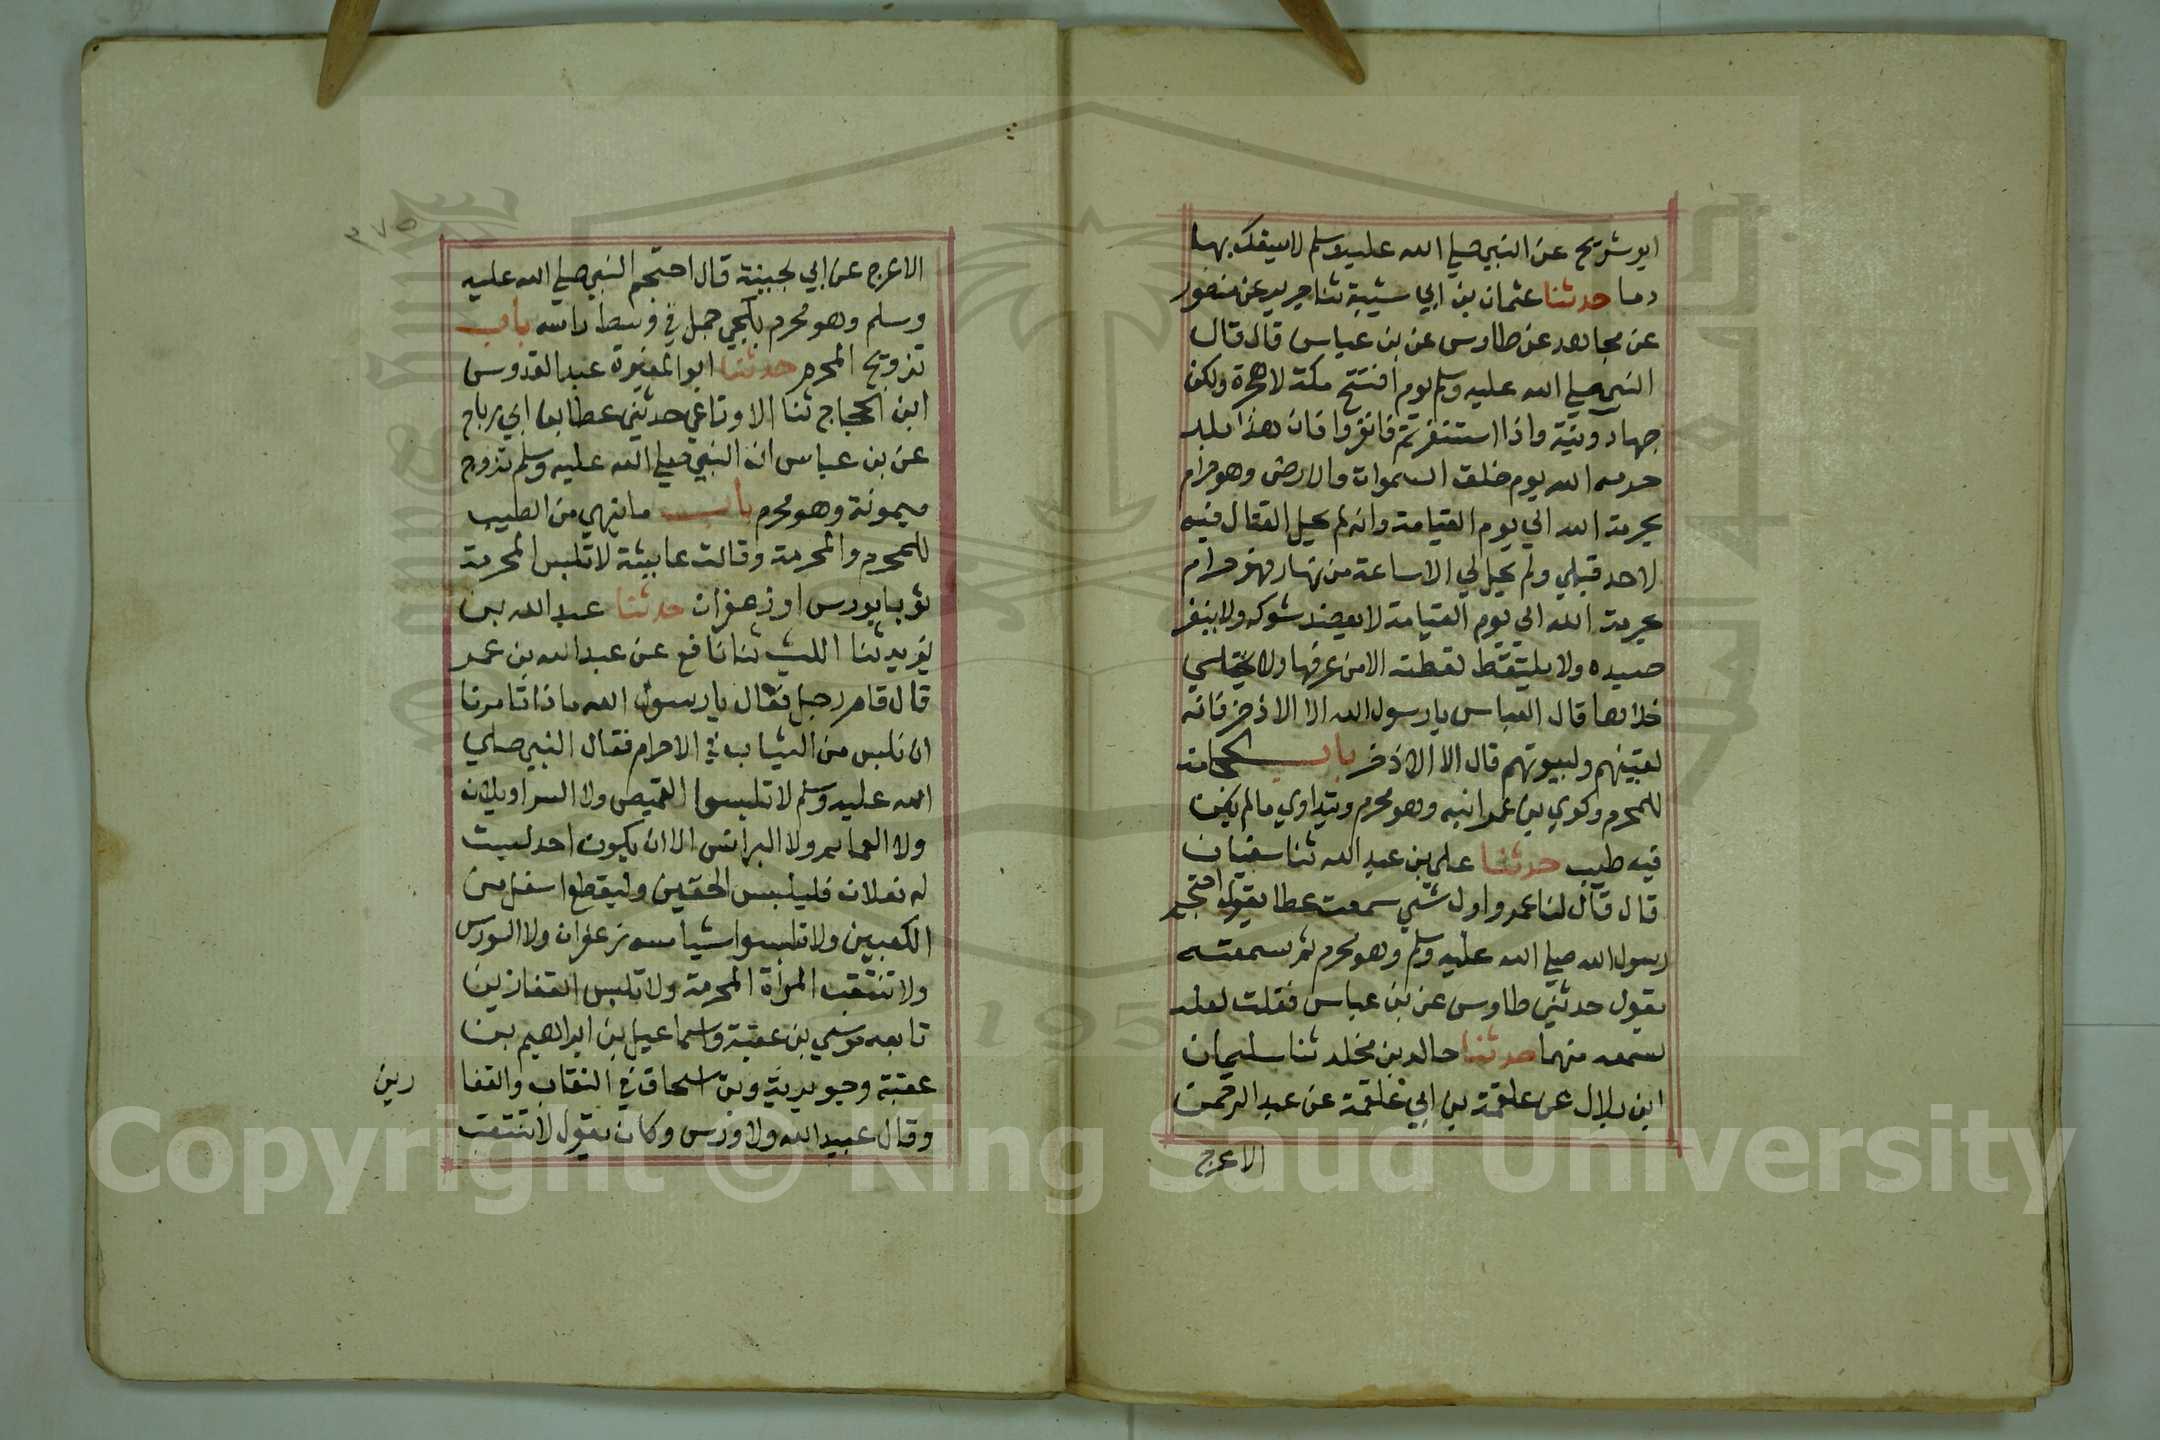 ابو شريح عن النبي صلي الله عليه وسلم لا يسفك بها
دما حدثنا عثمان بن ابي شيبة ثنا جرير عن منصور
عن مجاهد عن طاوس عن بن عباس قال قال
النبي صلي الله عليه وسلم يوم افتتح مكة لا هجرة ولكن
جهاد ونية واذا استنفرتم فانفروا فان هذا بلد
حرمه الله يوم خلق السموات والارض وهو حرام
بحرمة الله الي يوم القيامة وانه لم يحل القتال فيه
لاحد قبلي ولم يحل لي الا ساعة من نهار فهو حرام
بحرمة الله الي يوم القيامة لا يعضد شوكه ولا ينفر
صيده ولا يلتقط لقطته الا من عرفها ولا يختلي
خلاها قال العباس يا رسول الله الا الاذخر فانه
لقينهم ولبيوتهم قال الا الاذخر باب الحجامة
للمحرم وكوي بن عمر ابنه وهو محرم ويتداوي ما لم يكن
فيه طيب حدثنا علي بن عبد الله ثنا سفيان
قال قال لنا عمرو اول شي سمعت عطا يقول احتجم
رسول الله صلي الله عليه وسلم وهو محرم ثم سمعته
يقول حدثني طاوس عن بن عباس فقلت لعله
سمعه منهما حدثنا خالد بن مخلد ثنا سليمان
ابن بلال عن علقمة بن ابي علقمة عن عبد الرحمن
الاعرج
٣٧٥
الاعرج عن ابي بحينة قال احتجم النبي صلي الله عليه
وسلم وهو محرم بلحيي جمل في وسط راسه باب
تزويج المحرم حدثنا ابو المغيرة عبد القدوس
ابن الحجاج ثنا الاوزاعي حدثني عطا بن ابي رباح
عن بن عباس ان النبي صلي الله عليه وسلم تزوج
ميمونة وهو محرم باب ما ينهي من الطيب
للمحرم والمحرمة وقالت عايشة لا تلبس المحرمة
ثوبا بورس او زعفران حدثنا عبد الله بن
يزيد ثنا الليث ثنا نافع عن عبد الله بن عمر
قال قام رجل فقال يا رسول الله ماذا تامرنا
ان نلبس من الثياب في الاحرام فقال النبي صلي
الله عليه وسلم لا تلبسوا القميص ولا السراويلات
ولا العمايم ولا البرانس الا ان يكون احد ليست
له نعلان فليلبس الخفين وليقطع اسفل من
الكعبين ولا تلبسوا شيا مسه زعفران ولا الورس
ولا تنتقب المرأة المحرمة ولا تلبس القفازين
تابعه موسي بن عقبة واسماعيل بن ابراهيم بن
عقبة وجويرية وبن اسحاق في النقاب والقفا
زين
وقال عبيد الله ولا ورس وكان يقول لا تنتقب
Copyright © King Saud University
195